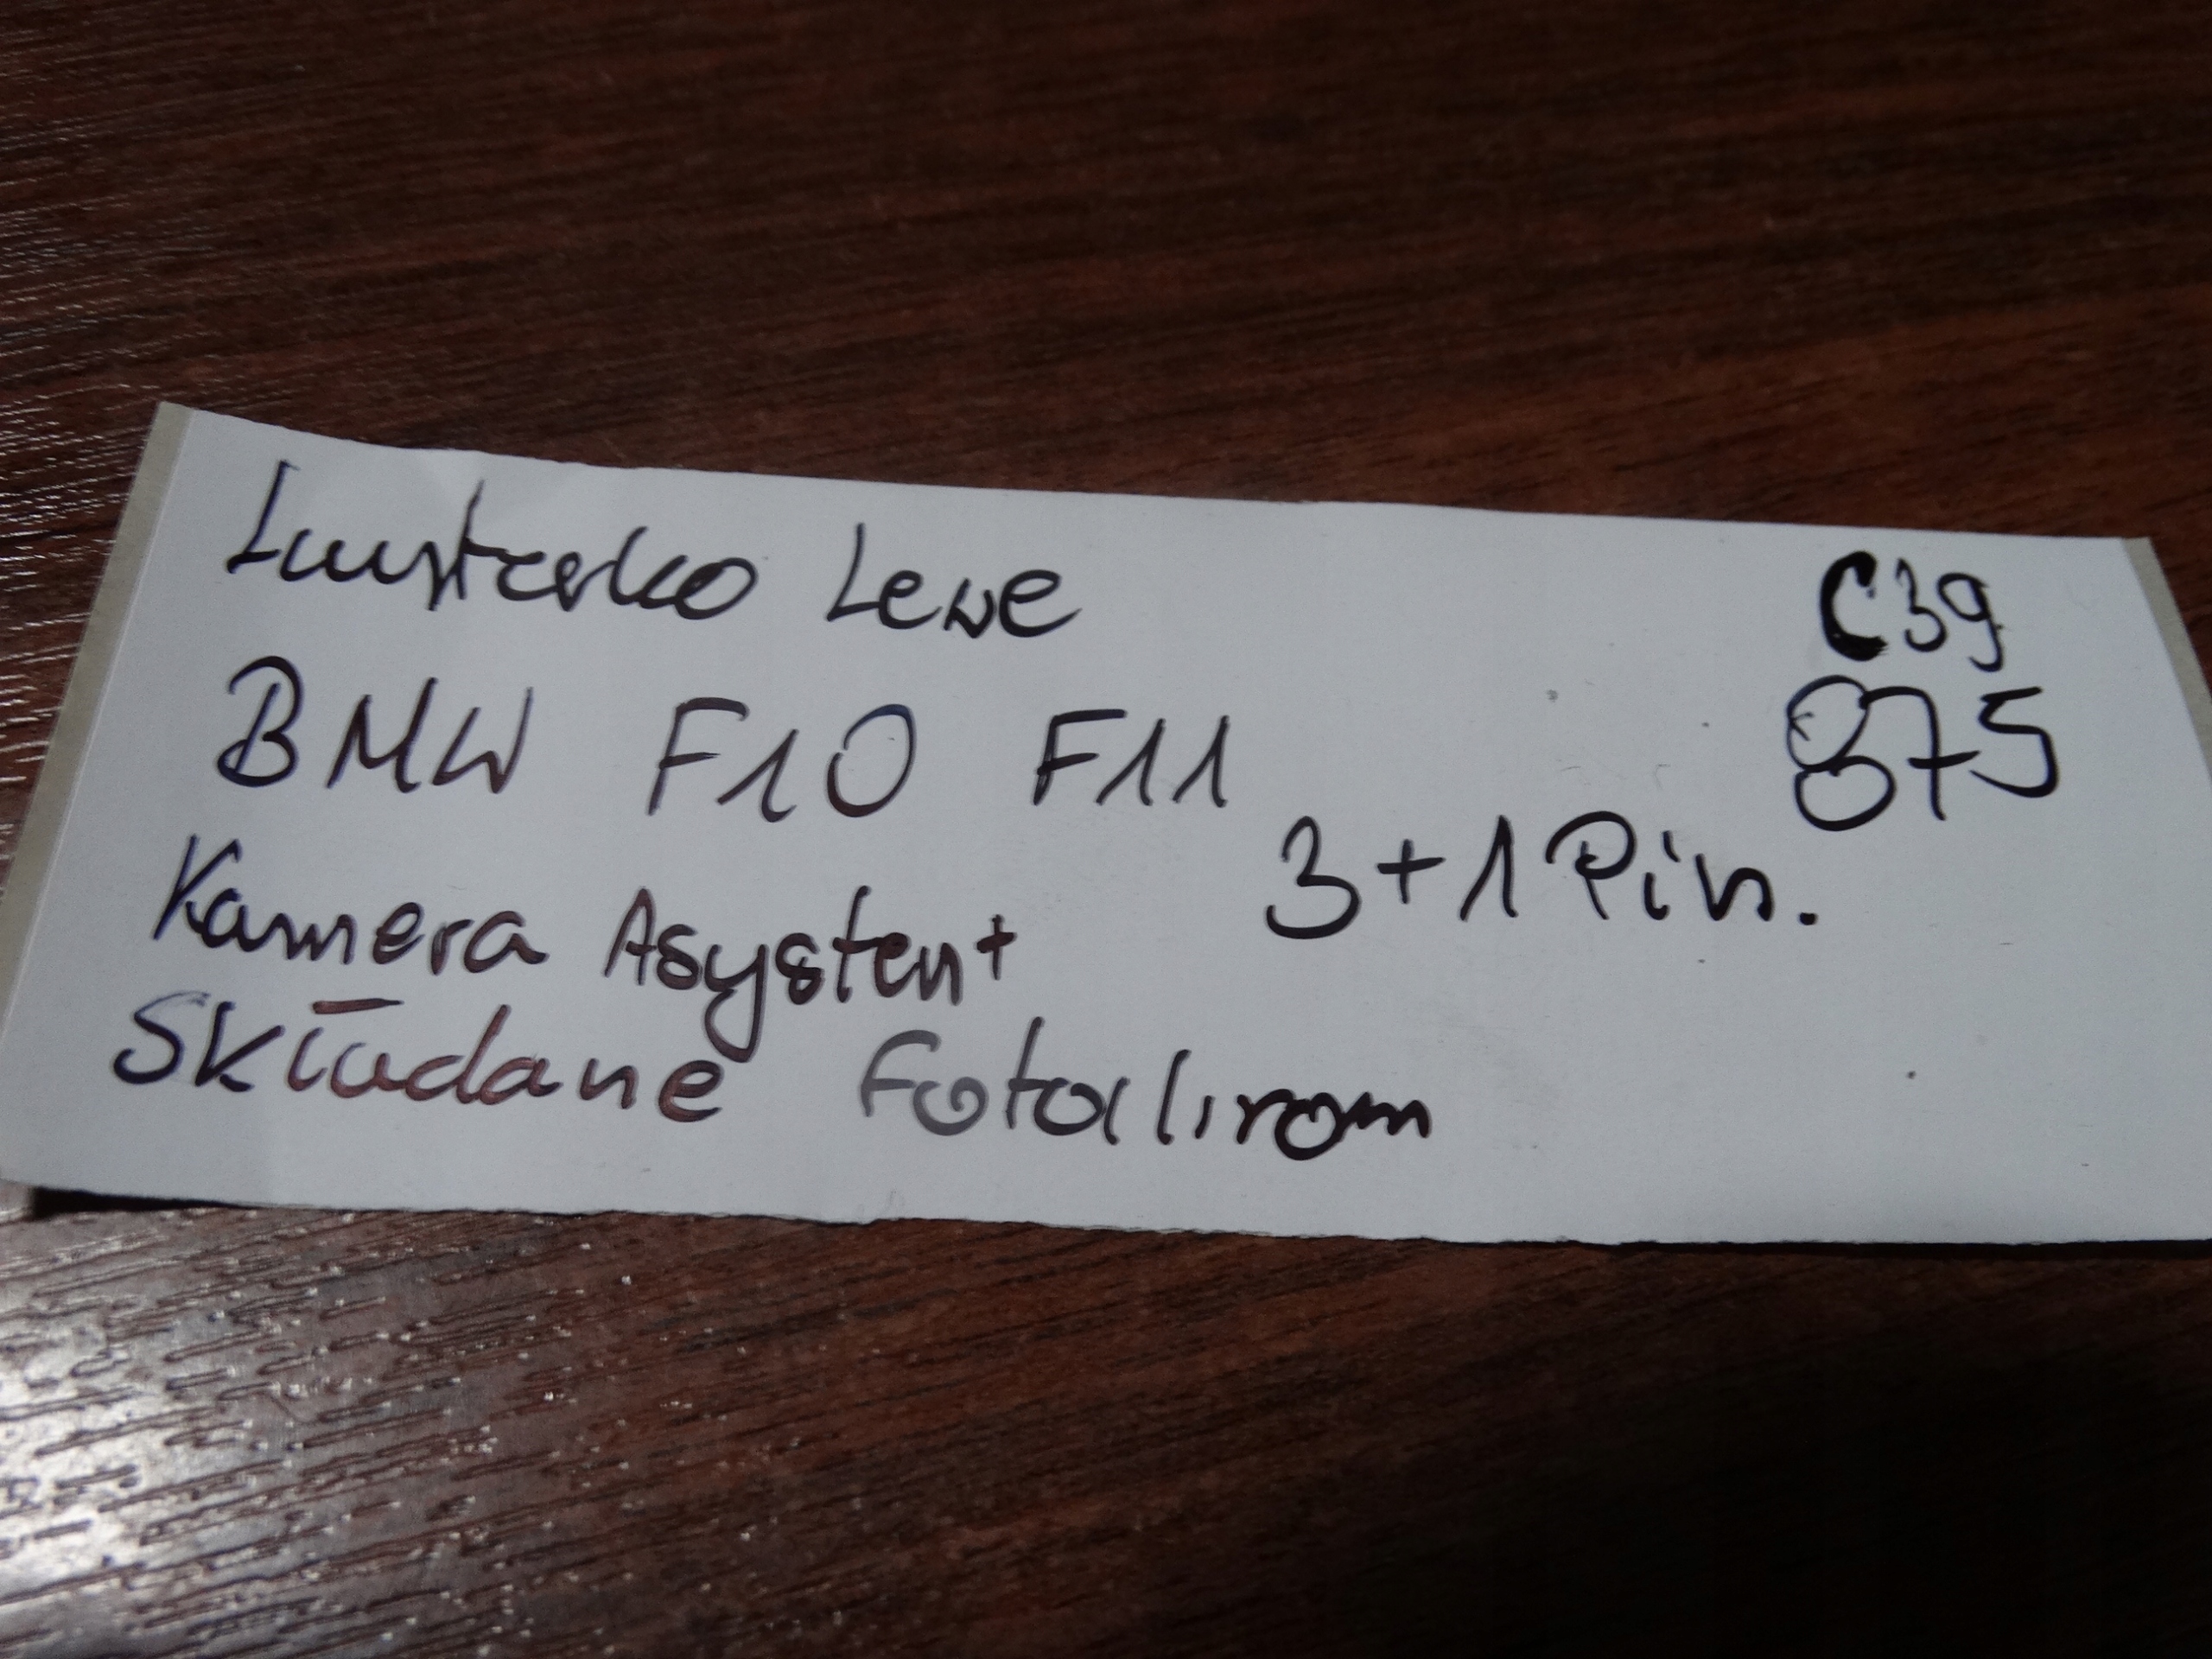 Lusterko Lewe
C39
BMW F10 F11
875
3+1 Pin.
Kamera Asystent
Składane Fotochrom